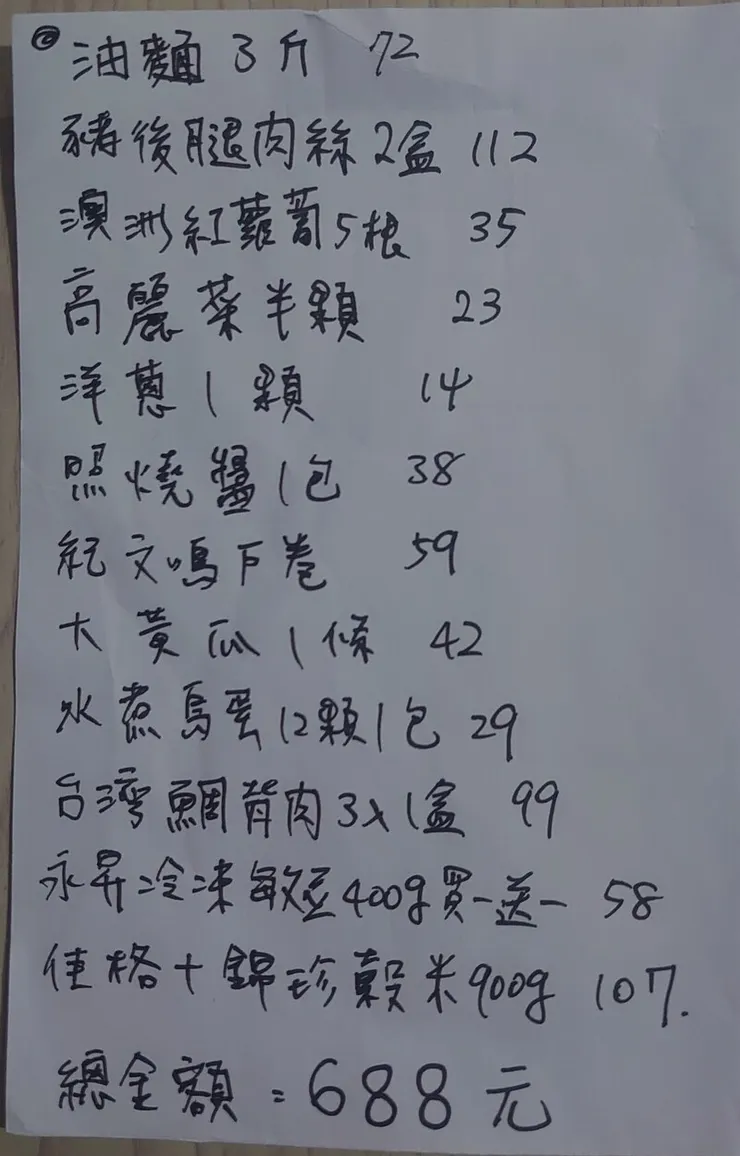 油麵3斤 72
豬後腿肉絲2盒 112
澳洲紅蘿蔔5根 35
高麗菜半顆 23
洋蔥1顆 14
照燒醬1包 38
紀文鳴戶卷 59
大黃瓜1條 42
水煮鳥蛋12顆1包 29
台灣鯛背肉3x1盒 99
永昇冷凍敏豆400g買一送一 58
佳格十錦珍穀米900g 107.
總金額=688元